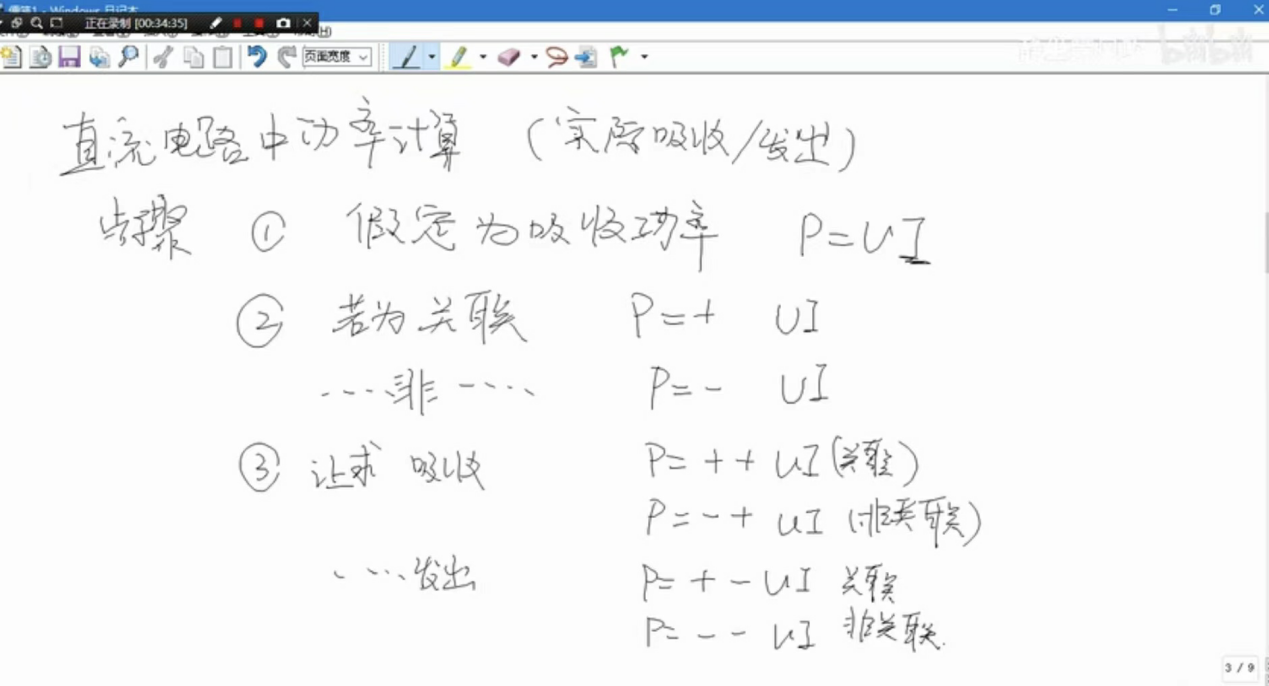 正在录制 [00:34:35]
页面宽度
bilibili
直流电路中功率计算 (实际吸收/发出)
步骤 ① 假定为吸收功率 P=UI
② 若为关联 P=+ UI
……非…… P=- UI
③ 让求 吸收 P=++UI(关联)
P=-+UI (非关联)
……发出 P=+-UI 关联
P=--UI 非关联.
3 / 9